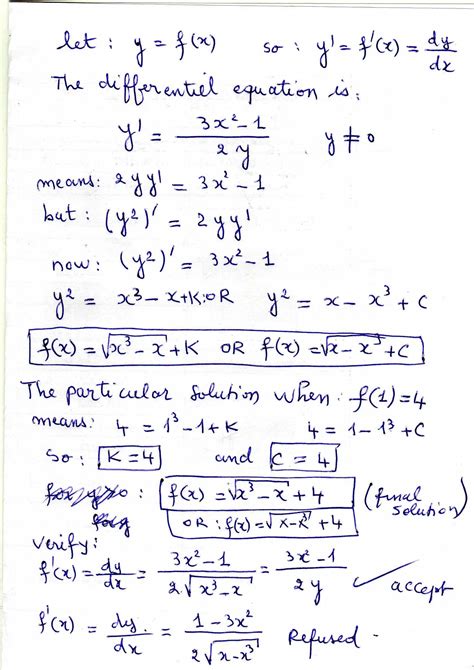 let : y = f(x) so : y' = f'(x) = dy/dx
The differentiel equation is:
y' = (3x²-1)/(2y) y ≠ 0
means: 2yy' = 3x²-1
but : (y²)' = 2yy'
now: (y²)' = 3x²-1
y² = x³-x+K; OR y² = x-x³+C
f(x) = √(x³-x)+K OR f(x) = √(x-x³)+C
The particular solution when: f(1)=4
means: 4 = 1³-1+K 4 = 1-1³+C
so: K=4 and C=4
: f(x) = √(x³-x)+4 (final solution)
OR: f(x) = √(x-x³)+4
verify:
f'(x) = dy/dx = (3x²-1)/(2√(x³-x)) = (3x²-1)/(2y) ✓ accept
f'(x) = dy/dx = (1-3x²)/(2√(x-x³)) Refused.